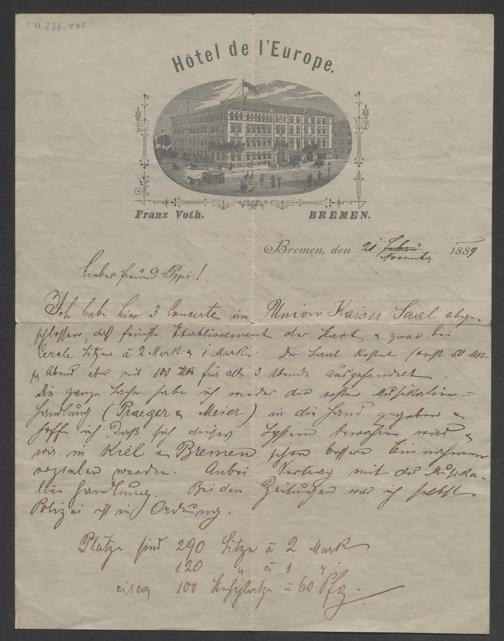 I.N. 236.175
Hôtel de l'Europe.
Franz Voth. BREMEN.
Bremen, den 21 November 1889
lieber Freund Pepi!
Ich habe hier 3 Concerte im Union Kaiser Saal abge-
schlossen das feinste Etablissement der Stadt, & zwar bei
Cercle Sitzen à 2 Mark & 1 Mark. Der Saal kostet sonst 50 Mk
Abend mit 100 Mk für alle 3 Abende
Die ganze Sache habe ich wieder der Musikalien-
handlung (Praeger & Meier) in die Hand gegeben &
hoffe ich daß sich dieses System bewähren wird &
wir in Kiel & Bremen schon bessere Einnahmen
erzielen werden. Anbei Vertrag mit der Musika-
lien Handlung. Bei den Zeitungen war ich selbst
Polizei ist in Ordnung.
Plätze sind 290 Sitze à 2 Mark
120 " à 1 "
circa 100 Stehplätze à 60 Pfg.